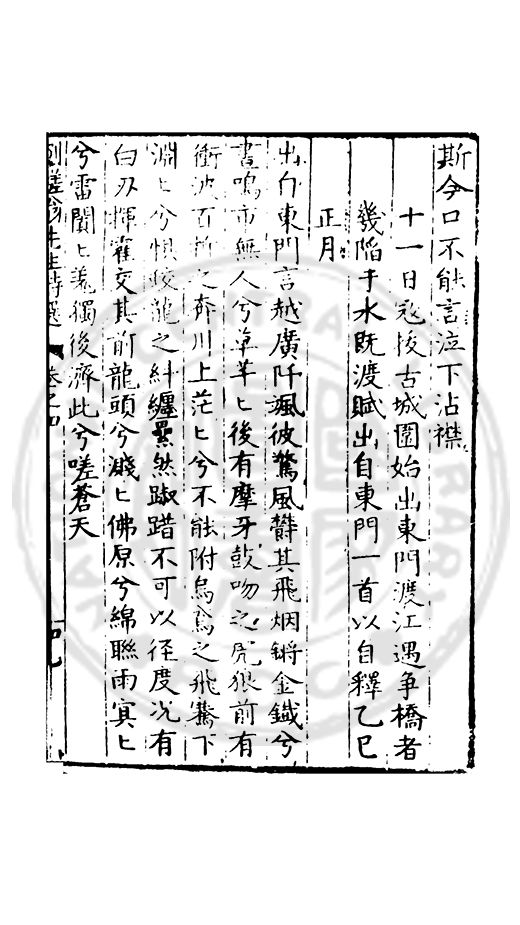 斯今口不能言泣下沾襟
十一日寇拔古城圍始出東門渡江遇爭橋者
幾陷于水既渡賦出自東門一首以自釋乙巳
正月
出自東門言越廣阡颯彼驚風聲其飛烟鏘金鐡兮
晝鳴市無人兮草芊〻後有摩牙鼓吻之虎狼前有
衝波百折之奔川上茫〻兮不能附烏鳶之飛騫下
淵〻兮惧蛟龍之糾纏纍然踧踖不可以徑度况有
白刃揮霍交其前龍頭兮濺〻佛原兮綿聯雨冥〻
兮雷闐〻羗獨後濟此兮嗟蒼天
先生詩選 卷之四